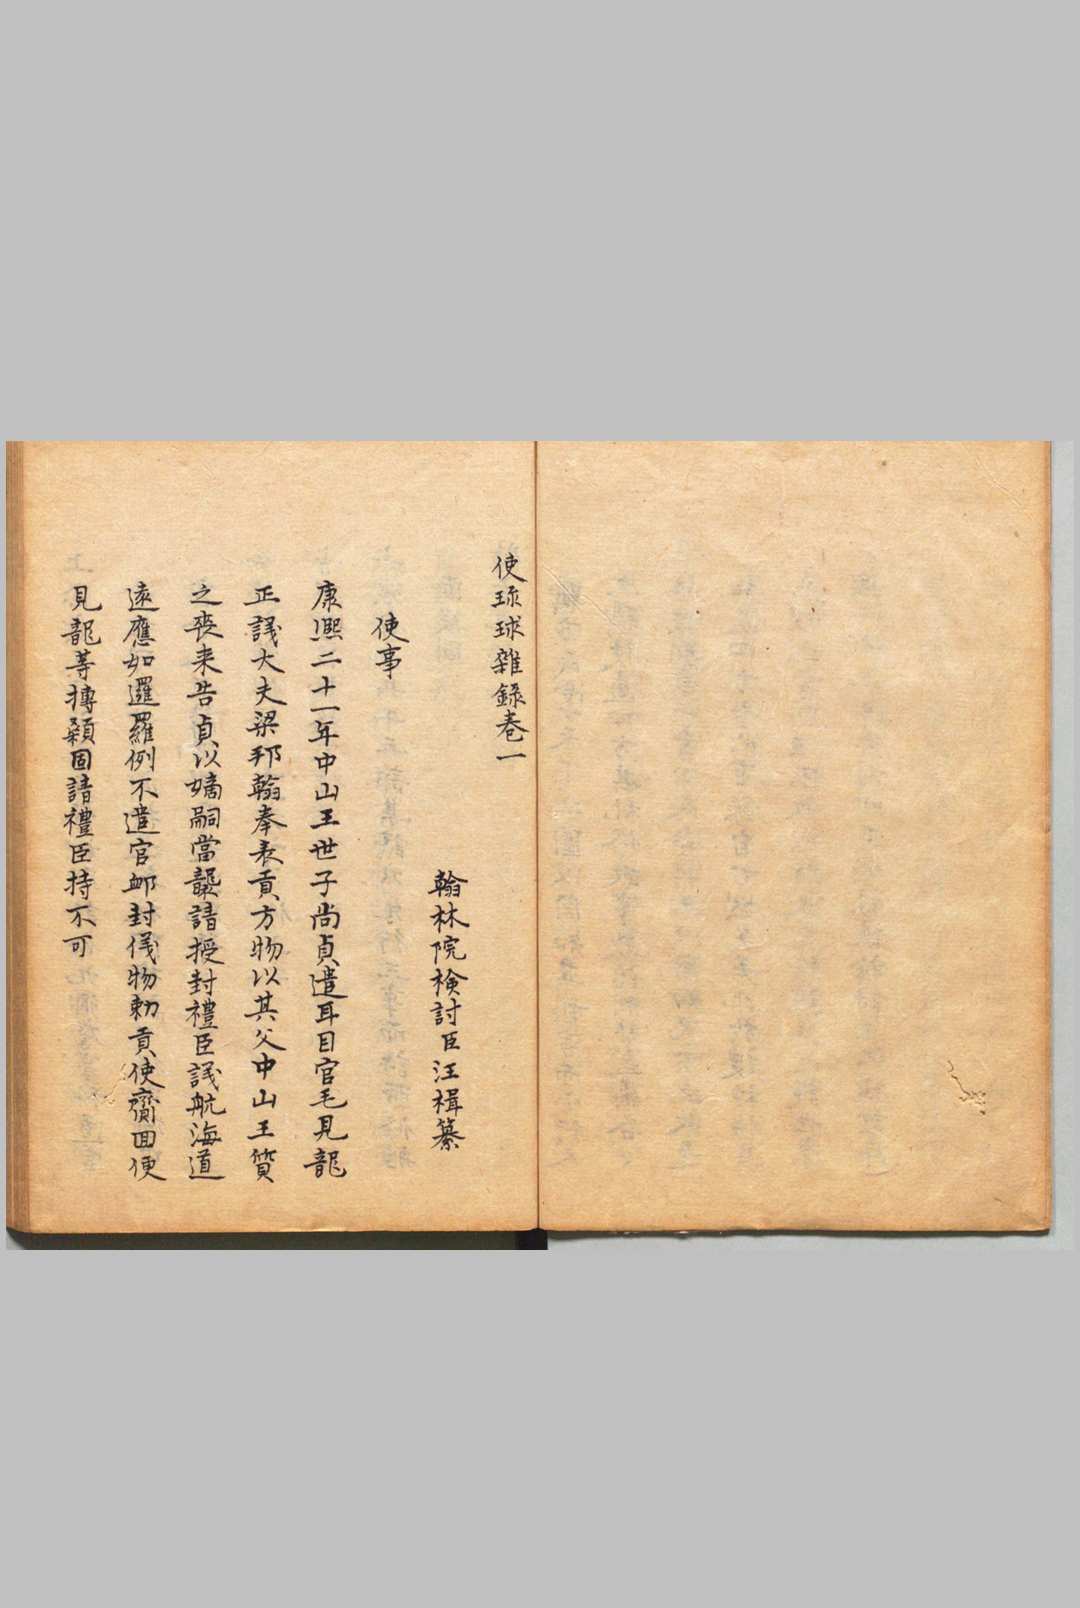 使琉球雜錄卷一
翰林院檢討臣汪楫纂
使事
康熈二十一年中山王世子尚貞遣耳目官毛見龍
正議大夫梁邦翰奉表貢方物以其父中山王質
之喪来告貞以嫡嗣當襲請授封禮臣議航海道
遠應如暹羅例不遣官䘏封儀物勅貢使齎囬便
見龍等摶顙固請禮臣持不可